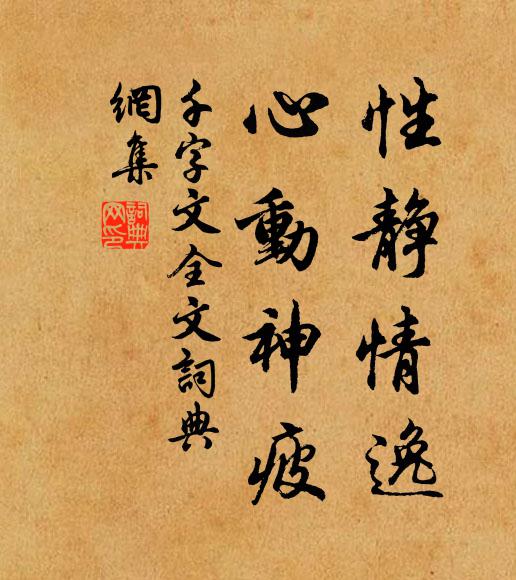 性静情逸
心動神疲
千字文全文詞典
網集
詞典
网印